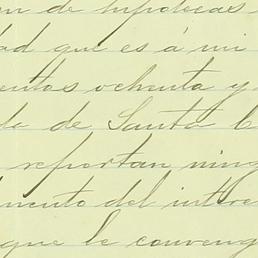 en de hipotecas
dad que es á mi
entos ochenta y
de de Santa C
reportan ning
mento del inter
que le conveng